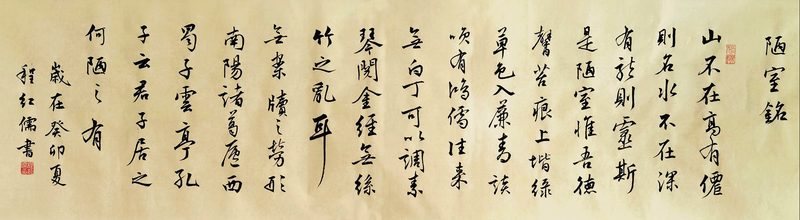 陋室銘
山不在高有僊
則名水不在深
有龍則靈斯
是陋室惟吾德
馨苔痕上堦綠
草色入簾青談
咲有鴻儒往來
無白丁可以調素
琴閱金經無絲
竹之亂耳
無案牘之勞形
南陽諸葛廬西
蜀子雲亭孔
子云君子居之
何陋之有
歲在癸卯夏
程紅儒書